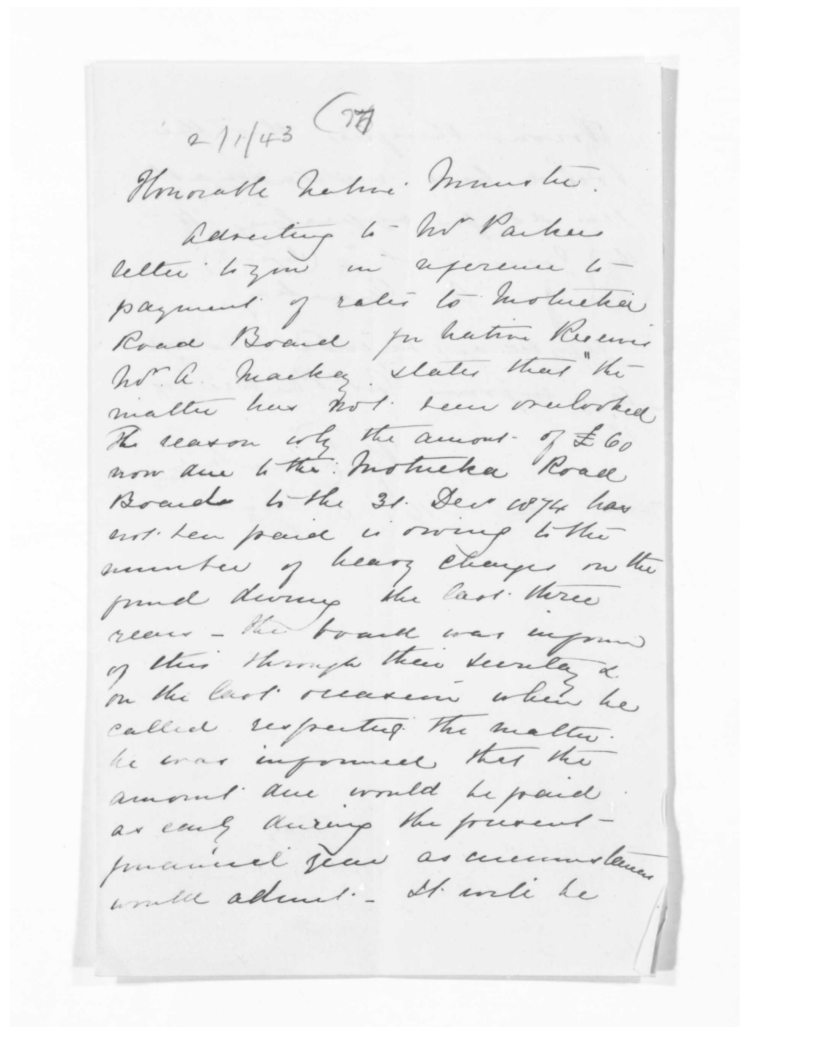 2/1/43
Honorable Native Minister.
Adverting to Mr Parkers
letter to you in reference to
payment of rates to Motueka
Road Board for Native Reserves
Mr. A. Mackay. states that "the
matter has not been overlooked
The reason why the amount of £60
now due to the Motueka Road
Board to the 31. Decr 1874 has
not been paid is owing to the
number of heavy charges on the
fund during the last three
years - the board was inform
of this through their Secretary &
on the last occasion when he
called respecting the matter.
he was informed that the
amount due would be paid
as early during the present
financial year as circumstances
would admit. - It will be